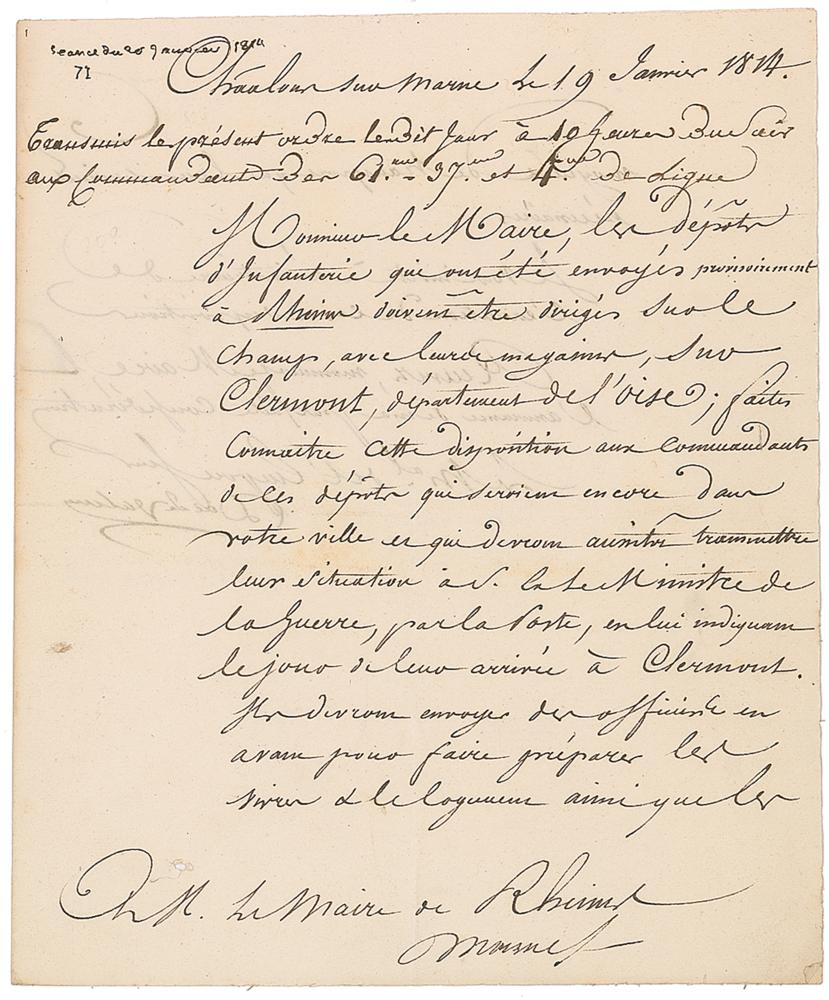 Seance du 20 Janvier 1814
71
Chaalons sur Marne Le 19 Janvier 1814.
Transmis le présent ordre ledit Jour à 10 heures du Soir
aux Commandants des 61.me 37.me et 4.me de Ligne
Monsieur le Maire, les dépôts
d'Infanterie qui ont été envoyés provisoirement
à Rheims doivent être dirigés sur le
Champ, avec leurs magasins, sur
Clermont, département de l'Oise; faites
Connaitre cette disposition aux Commandants
de ces dépôts qui seroient encore dans
votre ville et qui devront aussitôt transmettre
leur situation à S. Ex. le Ministre de
la Guerre, par la Poste, en lui indiquant
le jour de leur arrivée à Clermont.
Ils devront envoyer des officiers en
avant pour faire préparer les
vivres & le logement ainsi que les
A M. Le Maire de Rheims
Marne